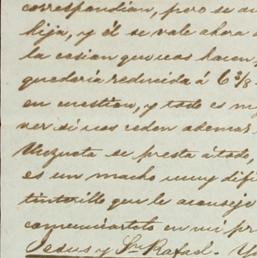 correspondian, pero se au
hija, y él se vale ahora a
la cosion que nos hacen,
quedaria reducida á 6 3/8
en cuestion, y todo es my
ver si nos ceden ademas
Unzueta se presta á todo,
es un macho muy difi
tintorillo que le aconseje
comunicartelo en mi pr
Jesus y Sn. Rafael. Yo